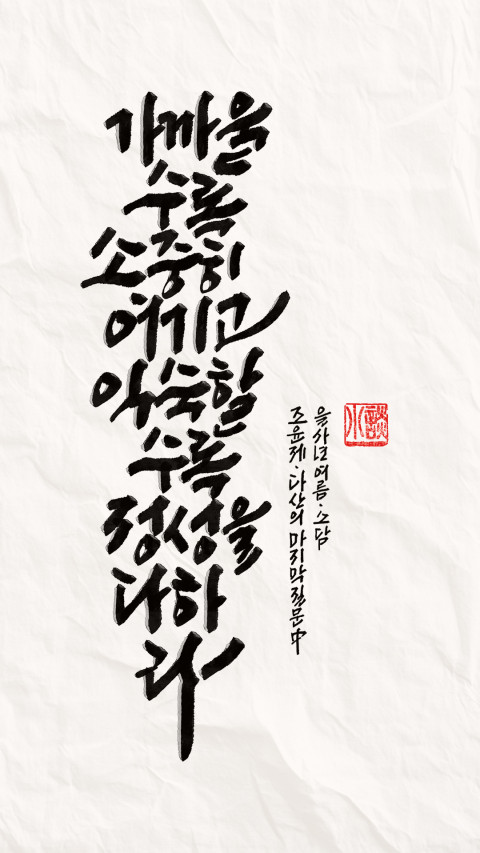 가까울
수록
소중히
여기고
익숙할
수록
정성을
다하
라
조윤제·다산의 마지막 질문 中
을사년 여름·소담
小談